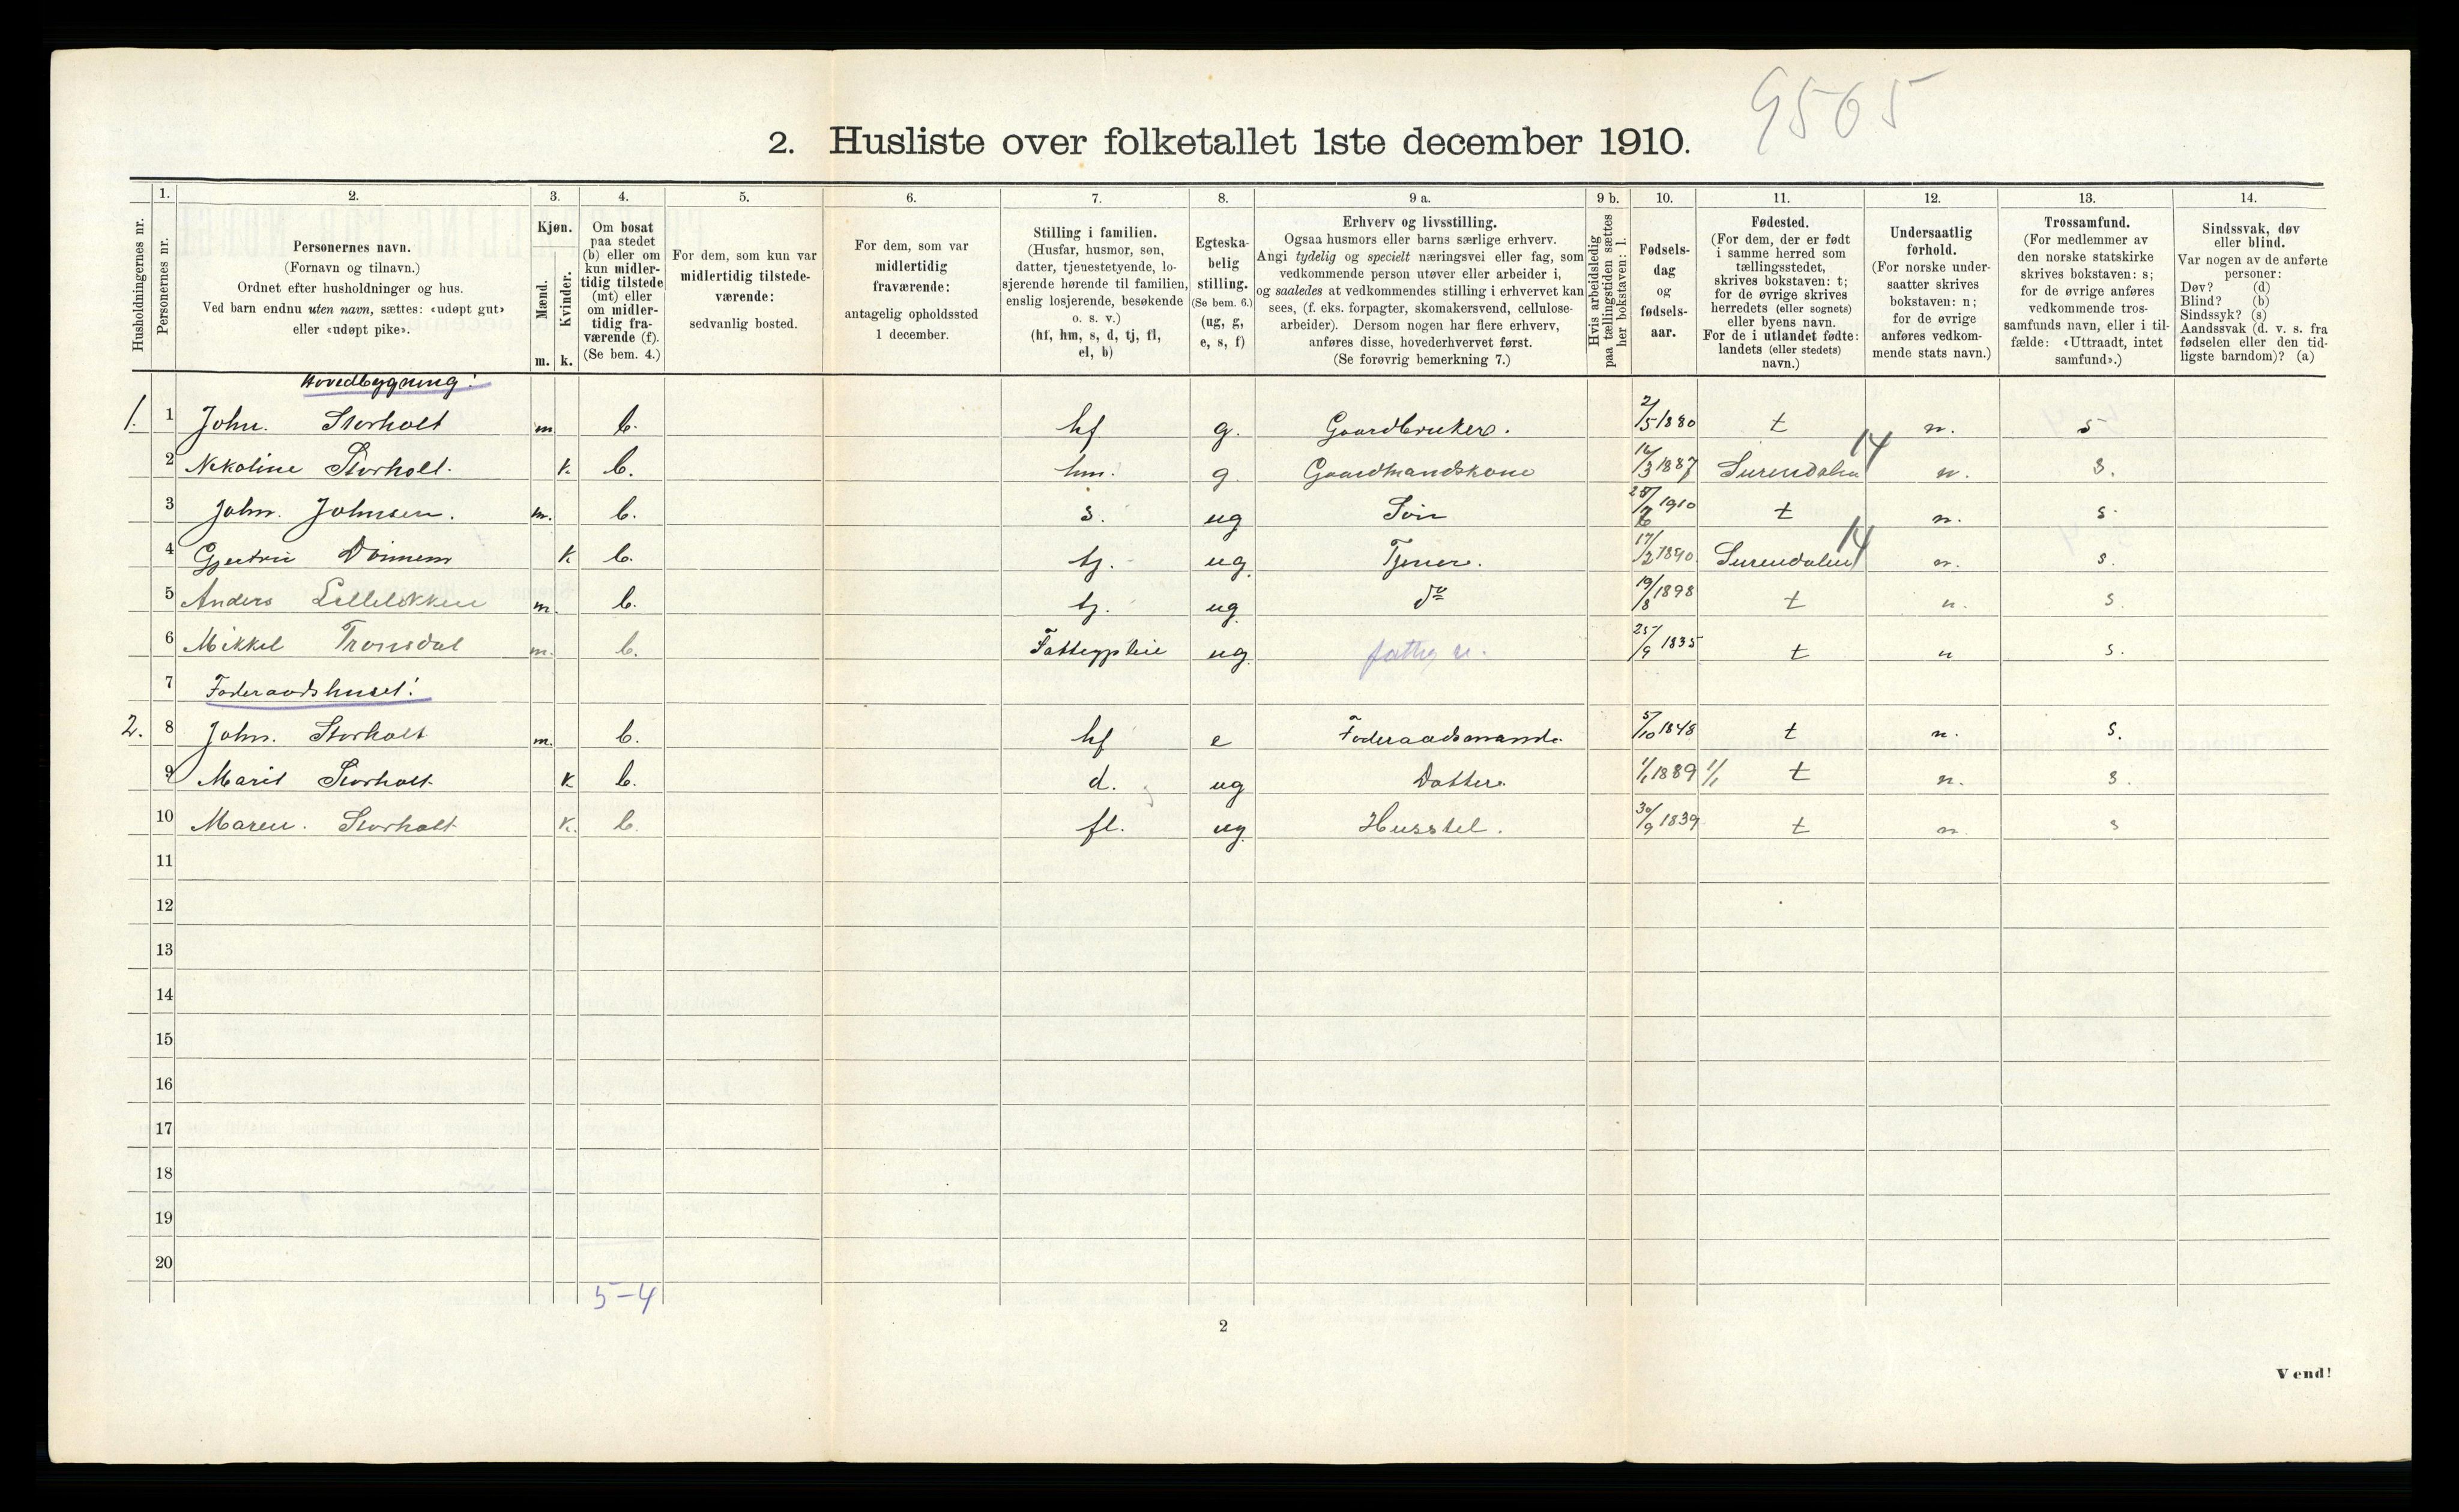 9565
2. Husliste over folketallet 1ste december 1910.
1. 2. 3. 4. 5. 6. 7. 8. 9 a. 9 b. 10. 11. 12. 13. 14.
Husholdningernes nr.
Personernes nr.
Personernes navn.
(Fornavn og tilnavn.)
Ordnet efter husholdninger og hus.
Ved barn endnu uten navn, sættes: «udøpt gut»
eller «udøpt pike».
Kjøn.
Mænd.
Kvinder.
m. k.
Om bosat
paa stedet
(b) eller om
kun midler-
tidig tilstede
(mt) eller
om midler-
tidig fra-
værende (f).
(Se bem. 4.)
For dem, som kun var
midlertidig tilstede-
værende:
sedvanlig bosted.
For dem, som var
midlertidig
fraværende:
antagelig opholdssted
1 december.
Stilling i familien.
(Husfar, husmor, søn,
datter, tjenestetyende, lo-
sjerende hørende til familien,
enslig losjerende, besøkende
o. s. v.)
(hf, hm, s, d, tj, fl,
el, b)
Egteska-
belig
stilling.
(Se bem. 6.)
(ug, g,
e, s, f)
Erhverv og livsstilling.
Ogsaa husmors eller barns særlige erhverv.
Angi tydelig og specielt næringsvei eller fag, som
vedkommende person utøver eller arbeider i,
og saaledes at vedkommendes stilling i erhvervet kan
sees, (f. eks. forpagter, skomakersvend, cellulose-
arbeider). Dersom nogen har flere erhverv,
anføres disse, hovederhvervet først.
(Se forøvrig bemerkning 7.)
Hvis arbeidsledig
paa tællingstiden sættes
her bokstaven: l.
Fødsels-
dag
og
fødsels-
aar.
Fødested.
(For dem, der er født
i samme herred som
tællingsstedet,
skrives bokstaven: t;
for de øvrige skrives
herredets (eller sognets)
eller byens navn.
For de i utlandet fødte:
landets (eller stedets)
navn.)
Undersaatlig
forhold.
(For norske under-
saatter skrives
bokstaven: n;
for de øvrige
anføres vedkom-
mende stats navn.)
Trossamfund.
(For medlemmer av
den norske statskirke
skrives bokstaven: s;
for de øvrige anføres
vedkommende tros-
samfunds navn, eller i til-
fælde: «Uttraadt, intet
samfund».)
Sindssvak, døv
eller blind.
Var nogen av de anførte
personer:
Døv? (d)
Blind? (b)
Sindssyk? (s)
Aandssvak (d. v. s. fra
fødselen eller den tid-
ligste barndom)? (a)
Hovedbygning!
1. 1 John. Storholt m b. hf g. Gaardbruker. 2/5 1880 t n. s
2 Nekoline Storholt. k. b. hm. g Gaardmandskone 16/3 1887 Surendalen 14 n. s.
3 John. Johnsen. m. b. s. ug Søn 1910 t n. s.
4 k b. tj. ug. Tjener. 17/2 1890 Surendalen 14 n. s.
5 Anders Lilleløkken m. b. tj. ug. do 19/8 1898 t n. s.
6 Mikkel Tronsdal m. b. ug. 25/9 1835 t n s.
7 Føderaadshuset!
2. 8 John. Storholt m. b. hf e Føderaadsmand. 5/10 1848 t n. s.
9 Marit Storholt. k b. d. ug Datter. 1/1 1889 1/1 t n. s.
10 Maren. Storholt k. b. fl. ug. Husstel. 30/9 1839 t n. s
11
12
13
14
15
16
17
18
19
20
5-4
2
Vend!